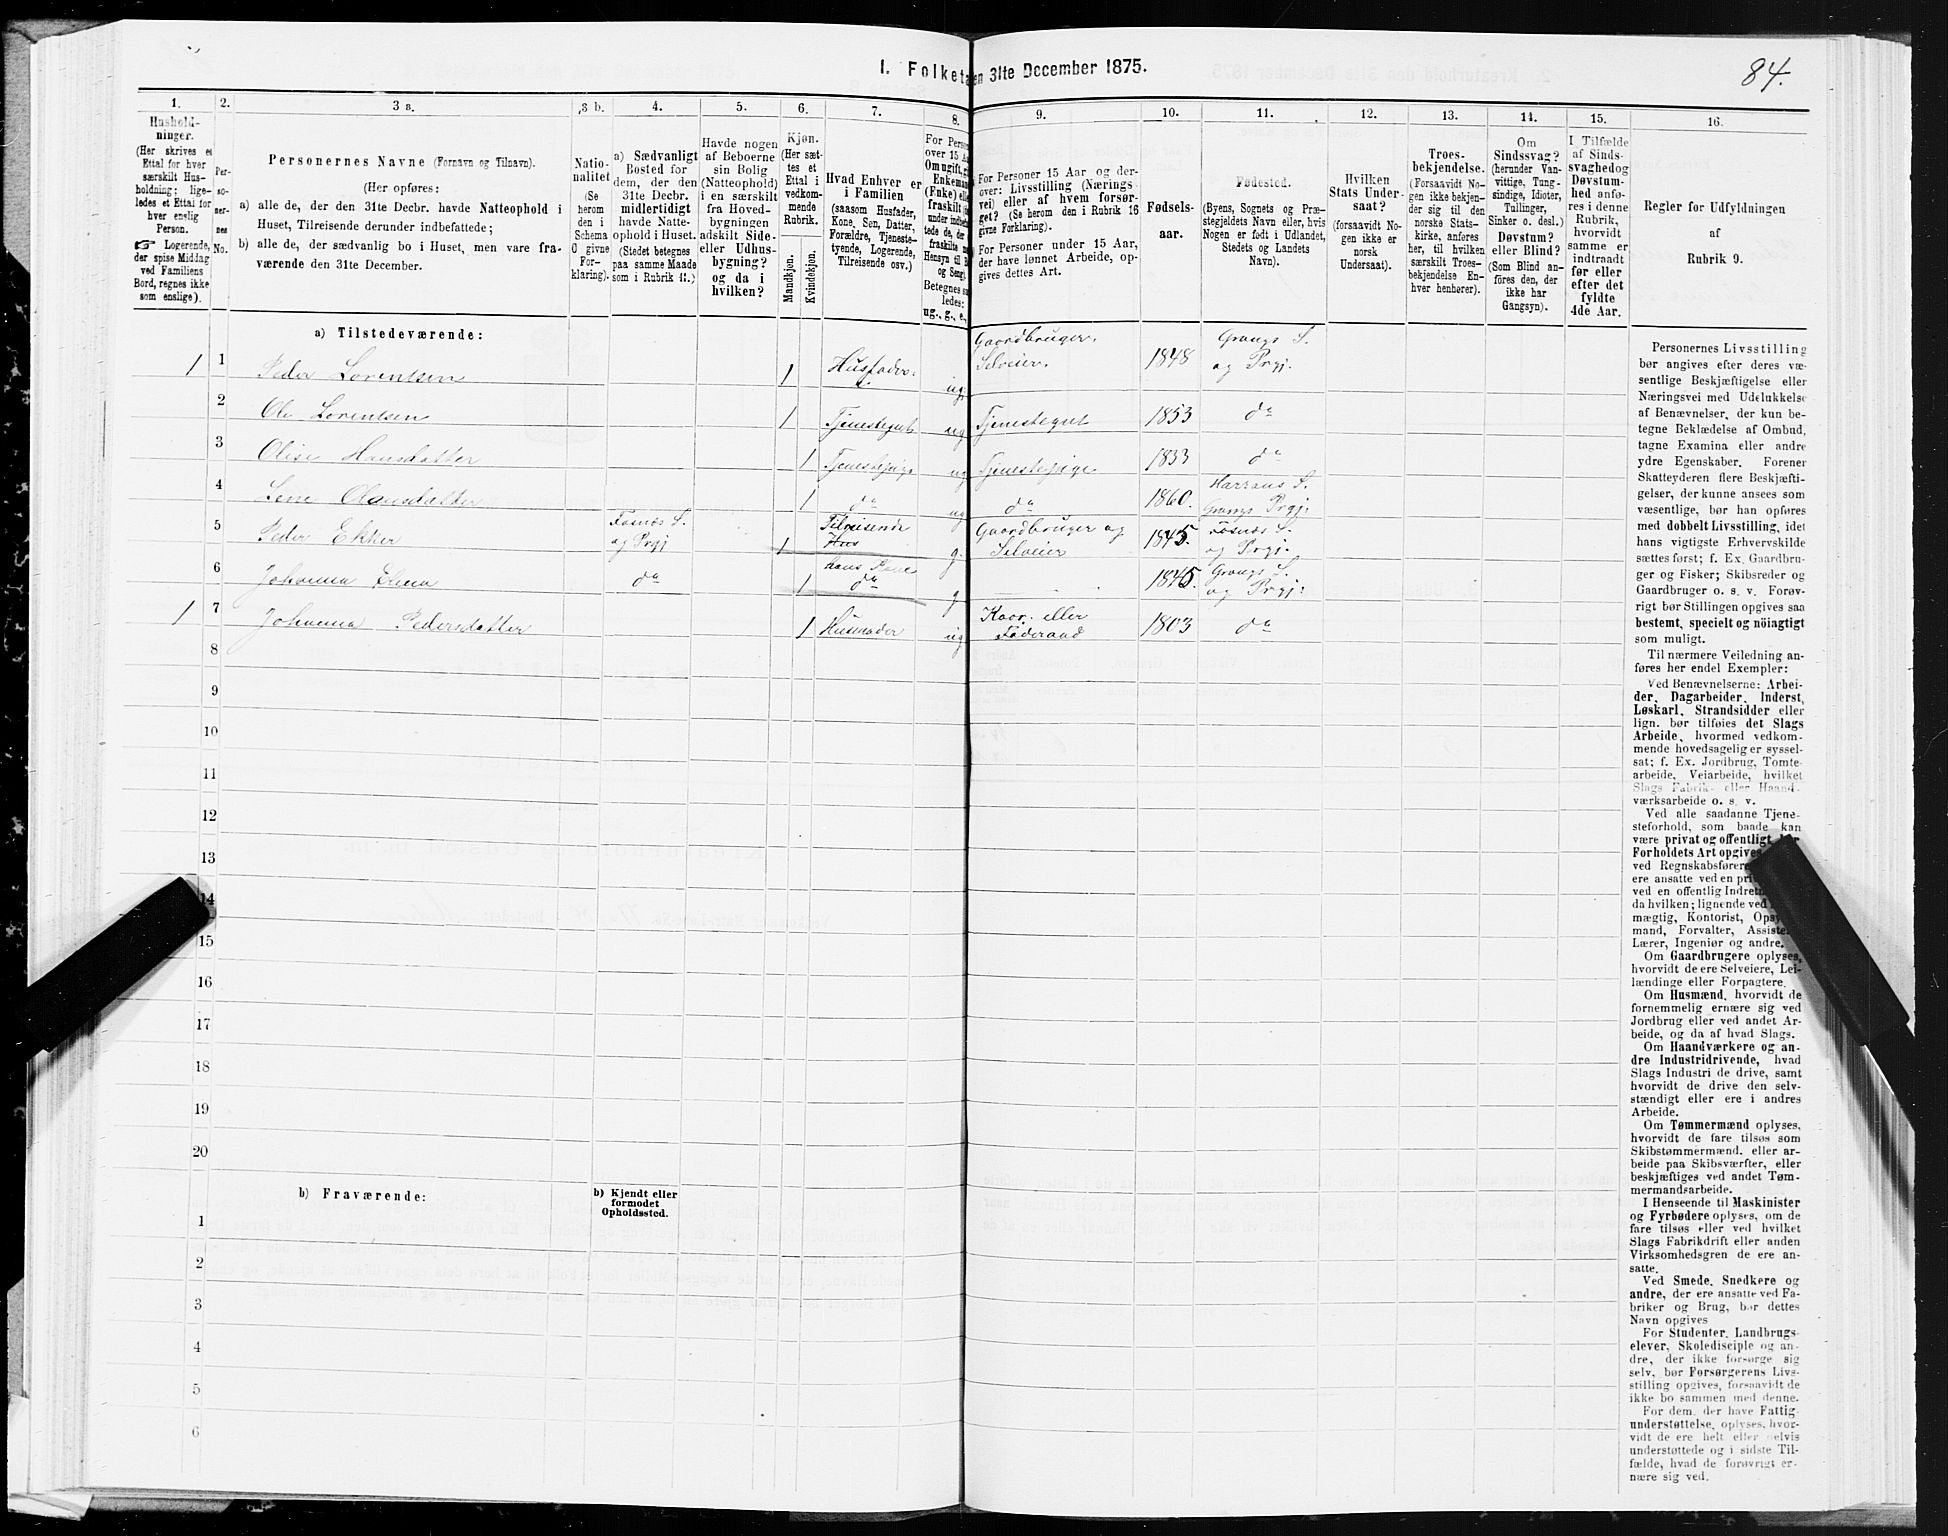 1. Folketa en 31te December 1875.
84.
1. 2. 3 a. 3 b. 4. 5. 6. 7. 8. 9. 10. 11. 12. 13. 14. 15. 16.
Hushold-
ninger.
(Her skrives et
Ettal for hver
særskilt Hus-
holdning; lige-
ledes et Ettal for
hver enslig
Person.
☞ Logerende,
der spise Middag
ved Familiens
Bord, regnes ikke
som enslige).
Per-
so-
ner-
nes
No.
Personernes Navne (Fornavn og Tilnavn).
(Her opføres:
a) alle de, der den 31te Decbr. havde Natteophold i
Huset, Tilreisende derunder indbefattede;
b) alle de, der sædvanlig bo i Huset, men vare fra-
værende den 31te December.
Natio-
nalitet
(Se
herom
den i
Schema
6 givne
For-
klaring).
a) Sædvanligt
Bosted for
dem, der den
31te Decbr.
midlertidigt
havde Natte-
ophold i Huset.
(Stedet betegnes
paa samme Maade
som i Rubrik 11.)
Havde nogen
af Beboerne
sin Bolig
(Natteophold)
i en særskilt
fra Hoved-
bygningen
adskilt Side-
eller Udhus-
bygning?
og da i
hvilken?
Kjøn.
(Her sæt-
tes et
Ettal i
vedkom-
mende
Rubrik.
Mandkjøn.
Kvindekjøn.
Hvad Enhver er
i Familien
(saasom Husfader,
Kone, Søn, Datter,
Forældre, Tjeneste-
tyende, Logerende,
Tilreisende osv.)
For Pers
over 15 A
Om ugift, g
Enkema
(Enke) ell
fraskilt
under indbef
tede de, der
fraskilte
Hensyn til B
og Seng).
Betegnes s
ledes:
ug., g., e.,
For Personer 15 Aar og der-
over: Livsstilling (Nærings-
vei) eller af hvem forsør-
get? (Se herom den i Rubrik 16
givne Forklaring).
For Personer under 15 Aar,
der have lønnet Arbeide, op-
gives dettes Art.
Fødsels-
aar.
Fødested.
(Byens, Sognets og Præ-
stegjeldets Navn eller, hvis
Nogen er født i Udlandet,
Stedets og Landets
Navn).
Hvilken
Stats Under-
saat?
(forsaavidt No-
gen ikke er
norsk
Undersaat).
Troes-
bekjendelse.
(Forsaavidt No-
gen ikke bekjen-
der sig til den
norske Stats-
kirke, anføres
her, til hvilken
særskilt Troes-
bekjendelse En-
hver henhører).
Om
Sindssvag?
(herunder Van-
vittige, Tung-
sindige, Idioter,
Tullinger,
Sinker o. desl.)
Døvstum?
eller Blind?
(Som Blind an-
føres den, der
ikke har
Gangsyn).
I Tilfælde
af Sinds-
svaghed og
Døvstum-
hed anfø-
res i denne
Rubrik,
hvorvidt
samme er
indtraadt
før eller
efter det
fyldte
4de Aar.
Regler for Udfyldningen
af
Rubrik 9.
a) Tilstedeværende:
1 1 Peder Lorentsen 1 Husfader. ug. Gaardbruger. Selveier. 1848 Grongs S. og Prgj.
2 Ole Lorentsen 1 Tjenestegut ug Tjenestegut 1853 do
3 Olise Hansdatter 1 Tjenestepige ug Tjenestepige 1833 do
4 Lene Olausdatter 1 do ug do 1860. Harrans S. Grongs Prgj:
5 Peder Ekker Fosnæs S. og Prgj 1 Tilreisende Hus g. Gaardbruger og Selveier 1845. Fosnæs S. og Prgj.
6 Johanna Elena do 1 hans Kone do g 1845. Grongs S. og Prgj:
1 7 Johanna Pedersdatter 1 Husmoder ug Kaar. eller Føderaad 1803 do
8
9
10
11
12
13
14
15
16
17
18
19
20
b) Fraværende:
b) Kjendt eller
formodet
Opholdssted.
1
2
3
4
5
6
Personernes Livsstilling
bør angives efter deres væ-
sentlige Beskjæftigelse eller
Næringsvei med Udelukkelse
af Benævnelser, der kun be-
tegne Beklædelse af Ombud,
tagne Examina eller andre
ydre Egenskaber. Forener
Skatteyderen flere Beskjæfti-
gelser, der kunne ansees som
væsentlige, bør han opføres
med dobbelt Livsstilling, idet
hans vigtigste Erhvervskilde
sættes først; f. Ex. Gaardbru-
ger og Fisker; Skibsreder og
Gaardbruger o. s. v. Forøv-
rigt bør Stillingen opgives saa
bestemt, specielt og nöiagtigt
som muligt.
Til nærmere Veiledning an-
føres her endel Exempler:
Ved Benævnelserne: Arbei-
der, Dagarbeider, Inderst,
Løskarl, Strandsidder eller
lign. bør tilføies det Slags
Arbeide, hvormed vedkom-
mende hovedsagelig er syssel-
sat; f. Ex. Jordbrug, Tomte-
arbeide, Veiarbeide, hvilket
Slags Fabrik- eller Haand-
værksarbeide o. s. v.
Ved alle saadanne Tjene-
steforhold, som baade kan
være privat og offentligt, bør
Forholdets Art opgives
ved Regnskabsføre
ere ansatte ved en pri
ved en offentlig Indret
da hvilken; lignende ved
mægtig, Kontorist, Opsy
mand, Forvalter, Assiste
Lærer, Ingeniør og andre.
Om Gaardbrugere oplyses,
hvorvidt de ere Selveiere, Lei-
lændinge eller Forpagtere.
Om Husmænd, hvorvidt de
fornemmelig ernære sig ved
Jordbrug eller ved andet Ar-
beide, og da af hvad Slags.
Om Haandværkere og an-
dre Industridrivende, hvad
Slags Industri de drive, samt
hvorvidt de drive den selv-
stændigt eller ere i andres
Arbeide.
Om Tømmermænd oplyses,
hvorvidt de fare tilsøs som
Skibstømmermænd, eller ar-
beide paa Skibsværfter, eller
beskjæftiges ved andet Tøm-
mermandsarbeide.
I Henseende til Maskinister
og Fyrbødere oplyses, om de
fare tilsøs eller ved hvilket
Slags Fabrikdrift eller anden
Virksomhedsgren de ere an-
satte.
Ved Smede, Snedkere og
andre, der ere ansatte ved Fa-
briker og Brug, bør dettes
Navn opgives
For Studenter, Landbrugs-
elever, Skoledisciple og an-
dre, der ikke forsørge sig
selv, bør Forsørgerens Livs-
stilling opgives, forsaavidt de
ikke bo sammen med denne.
For dem, der have Fattig-
understøttelse, oplyses, hvor-
vidt de ere helt eller delvis
understøttede og i sidste Til-
fælde, hvad de forøvrigt er-
nære sig ved.